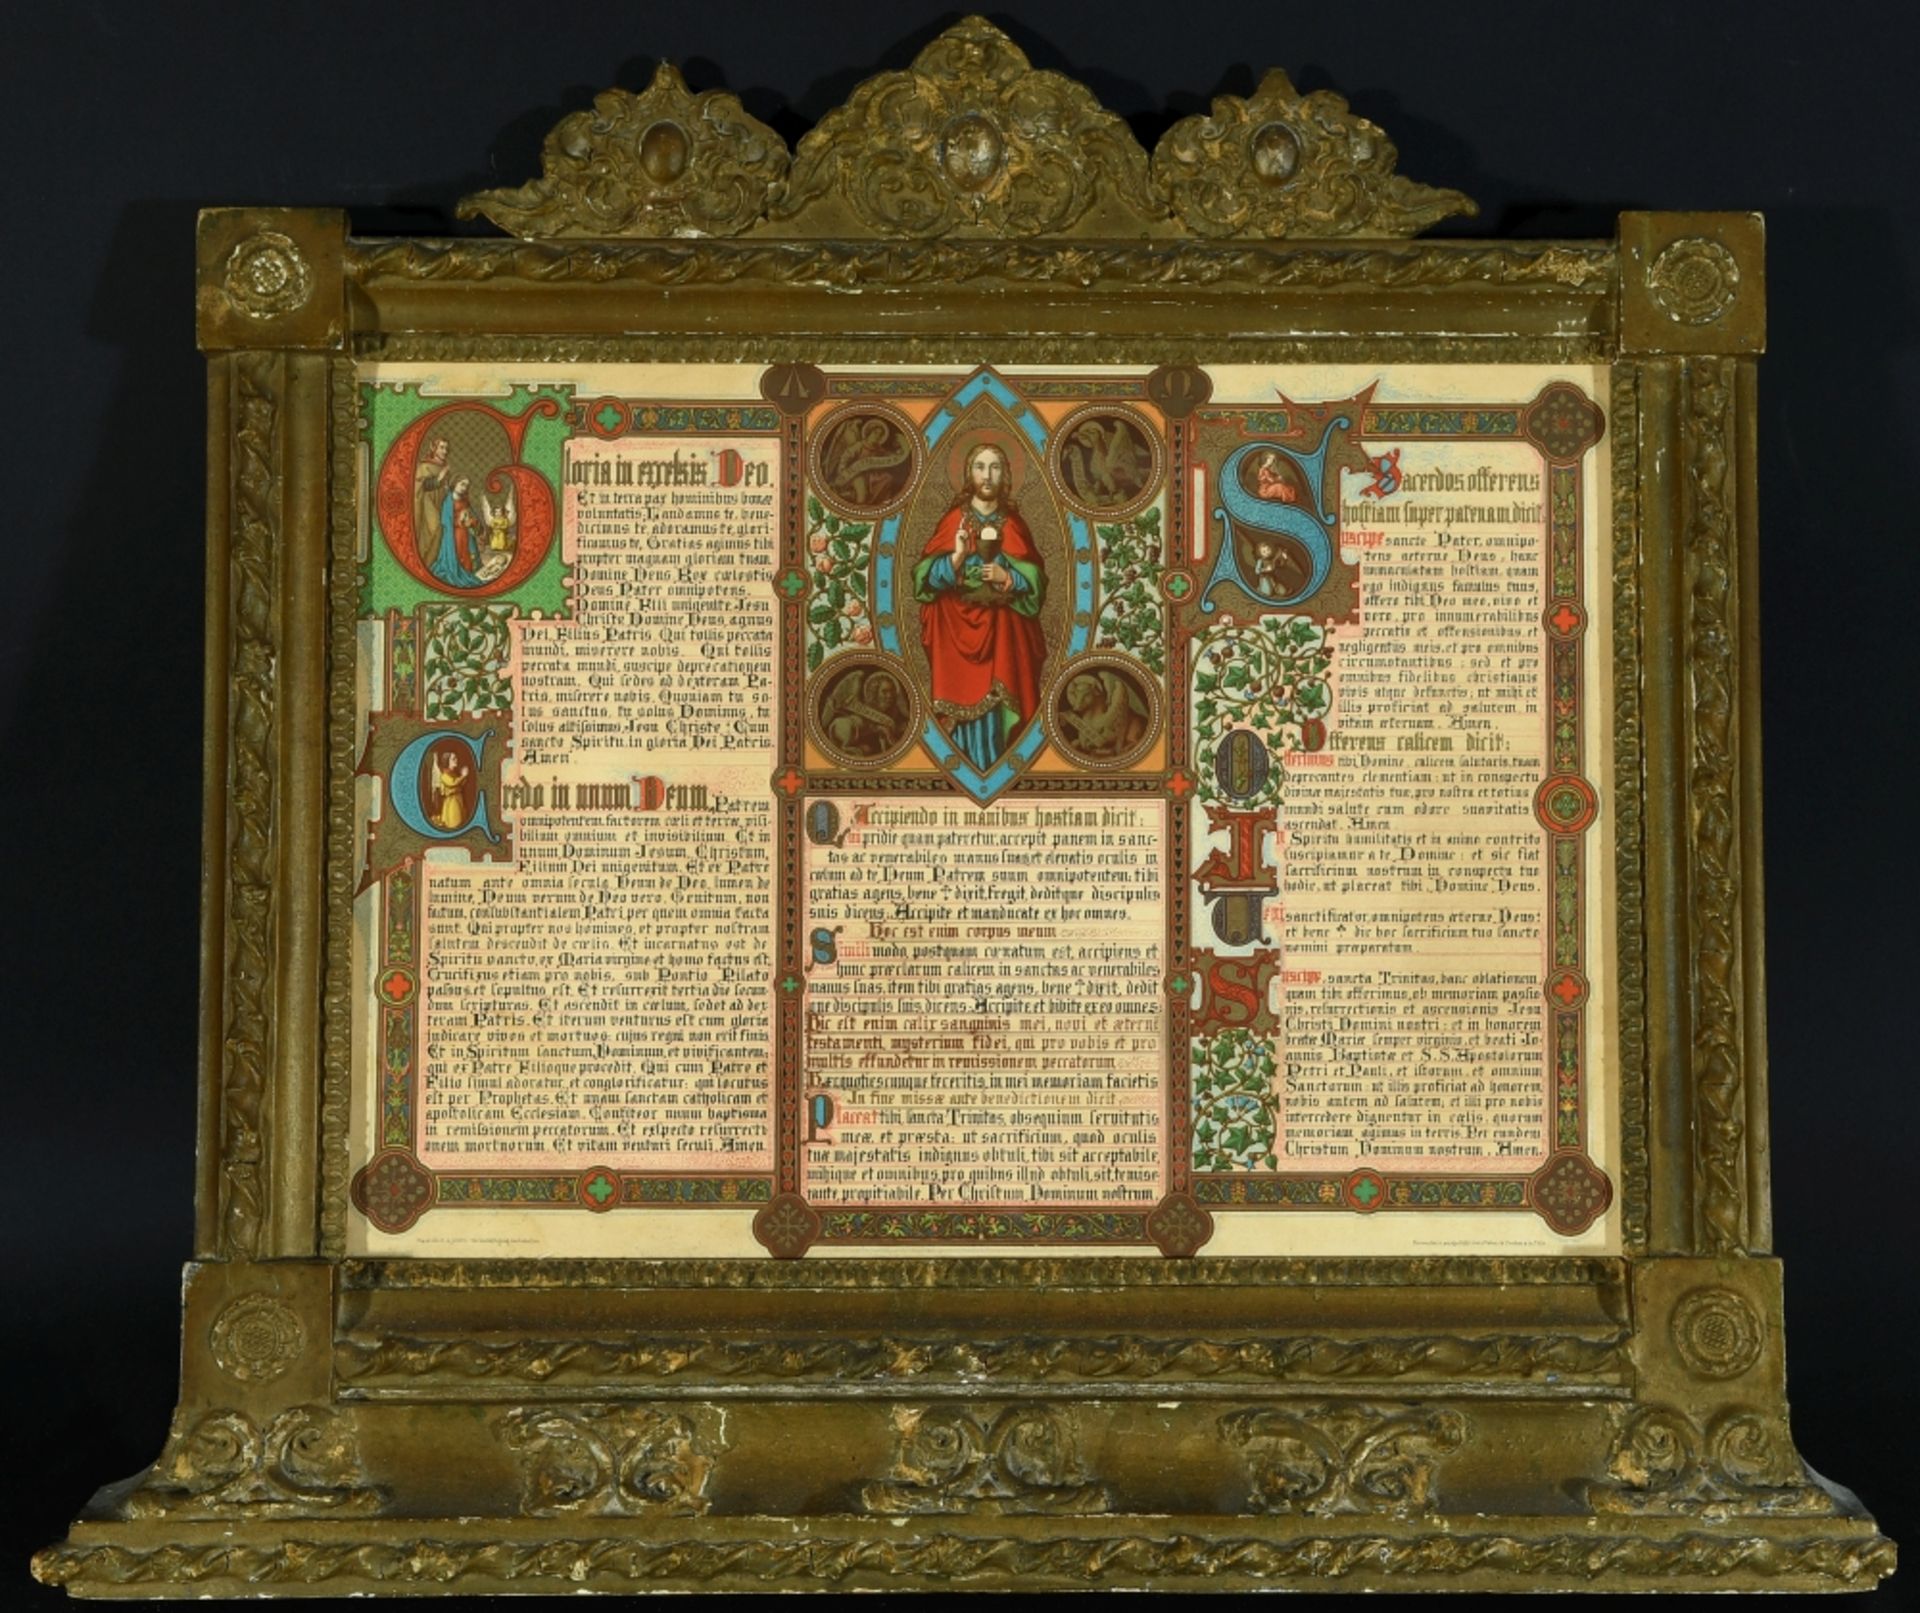 Gloria in excelsis Deo.
Et in terra pax hominibus bonæ
voluntatis. Laudamus te, bene-
dicimus te, adoramus te, glori-
ficamus te, Gratias agimus tibi
propter magnam gloriam tuam
Domine Deus Rex cœlestis
Deus Pater omnipotens.
Domine Fili unigenite Jesu
Christe Domine Deus, agnus
Dei, Filius Patris. Qui tollis peccata
mundi, miserere nobis. Qui tollis
peccata mundi, suscipe deprecationem
nostram. Qui sedes ad dexteram Pa-
tris, miserere nobis. Quoniam tu so-
lus sanctus, tu solus Dominus, tu
solus altissimus, Jesu Christe: Cum
sancto Spiritu, in gloria Dei Patris.
Amen.
Credo in unum Deum, Patrem
omnipotentem, factorem cœli et terræ, visi-
bilium omnium et invisibilium. Et in
unum Dominum Jesum Christum,
Filium Dei unigenitum. Et ex Patre
natum ante omnia secula. Deum de Deo, lumen de
lumine, Deum verum de Deo vero. Genitum, non
factum, consubstantialem Patri, per quem omnia facta
sunt. Qui propter nos homines, et propter nostram
salutem descendit de cœlis. Et incarnatus est de
Spiritu sancto, ex Maria virgine et homo factus est.
Crucifixus etiam pro nobis, sub Pontio Pilato
passus, et sepultus est. Et resurrexit tertia die secun-
dum scripturas. Et ascendit in cœlum, sedet ad dex-
teram Patris. Et iterum venturus est cum gloria
judicare vivos et mortuos: cujus regni non erit finis.
Et in Spiritum sanctum, Dominum, et vivificantem:
qui ex Patre Filioque procedit. Qui cum Patre et
Filio simul adoratur, et conglorificatur: qui locutus
est per Prophetas. Et unam sanctam catholicam et
apostolicam Ecclesiam. Confiteor unum baptisma
in remissionem peccatorum. Et expecto resurrecti-
onem mortuorum. Et vitam venturi seculi. Amen.
Α Ω
Accipiendo in manibus hostiam dicit:
Qui pridie quam pateretur, accepit panem in sanc-
tas ac venerabiles manus suas, et elevatis oculis in
cœlum ad te Deum Patrem suum omnipotentem: tibi
gratias agens, bene † dixit, fregit, deditque discipulis
suis dicens: Accipite et manducate ex hoc omnes.
Hoc est enim corpus meum
Simili modo, postquam cœnatum est, accipiens et
hunc præclarum calicem in sanctas ac venerabiles
manus suas, item tibi gratias agens, bene † dixit, dedit
que discipulis suis, dicens: Accipite et bibite ex eo omnes:
Hic est enim calix sanguinis mei, novi et æterni
testamenti, mysterium fidei, qui pro vobis et pro
multis effundetur in remissionem peccatorum
Hæc quotiescunque feceritis, in mei memoriam facietis
In fine missæ ante benedictionem dicit
Placeat tibi, sancta Trinitas, obsequium servitutis
meæ, et præsta: ut sacrificium, quod oculis
tuæ majestatis indignus obtuli, tibi sit acceptabile,
mihique et omnibus, pro quibus illud obtuli, sit, te mise-
rante, propitiabile. Per Christum, Dominum nostrum
Sacerdos offerens
hostiam super patenam, dicit
Suscipe sancte Pater, omnipo-
tens æterne Deus, hanc
immaculatam hostiam, quam
ego indignus famulus tuus,
offero tibi Deo meo, vivo et
vero, pro innumerabilibus
peccatis et offensionibus, et
negligentiis meis, et pro omnibus
circumstantibus: sed et pro
omnibus fidelibus christianis
vivis atque defunctis; ut mihi et
illis proficiat ad salutem, in
vitam æternam. Amen.
Offerens calicem dicit:
Offerimus tibi Domine, calicem salutaris, tuam
deprecantes clementiam: ut in conspectu
divinæ majestatis tuæ, pro nostra et totius
mundi salute cum odore suavitatis
ascendat. Amen
In Spiritu humilitatis et in animo contrito
suscipiamur a te, Domine: et sic fiat
sacrificium nostrum in conspectu tuo
hodie, ut placeat tibi, Domine, Deus.
Veni sanctificator, omnipotens æterne, Deus:
et bene † dic hoc sacrificium tuo sancto
nomini præparatum.
Suscipe, sancta Trinitas, hanc oblationem,
quam tibi offerimus, ob memoriam passio
nis, resurrectionis et ascensionis Jesu
Christi Domini nostri: et in honorem
beatæ Mariæ semper virginis, et beati Jo-
annis Baptistæ et S. S. Apostolorum
Petri et Pauli, et istorum, et omnium
Sanctorum: ut illis proficiat ad honorem,
nobis autem ad salutem; et illi pro nobis
intercedere dignentur in cœlis, quorum
memoriam agimus in terris. Per eundem
Christum, Dominum nostrum, Amen.